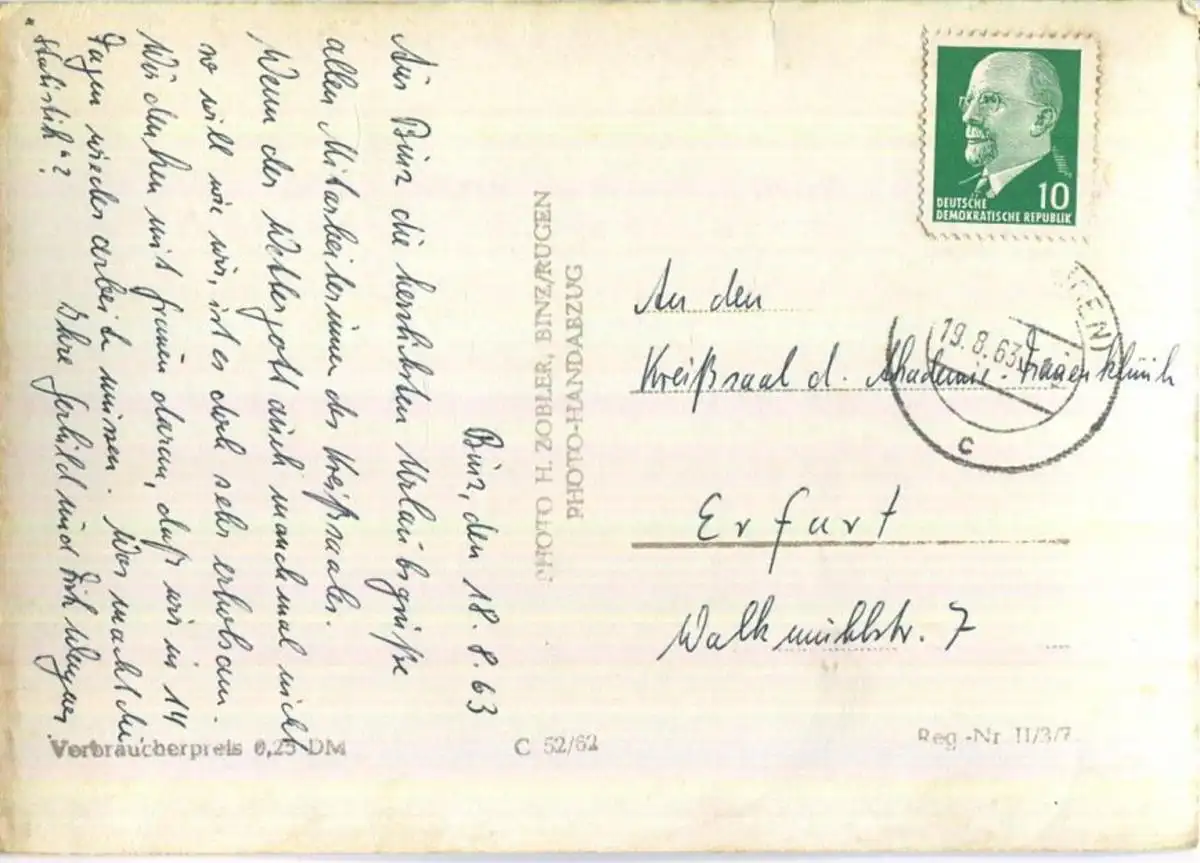 Binz, den 18.8.63
Aus Binz die herzlichsten Urlaubsgrüße
allen Mitarbeiterinnen des Kreißsaales.
Wenn der Wettergott auch manchmal nicht
so will wie wir, ist es doch sehr erholsam.
Wir denken mit frauen daran, daß wir in 14
Tagen wieder arbeiten müssen. Was macht die
"Statistik"?
Ihre Gerhild und
PHOTO H. ZOBLER, BINZ/RÜGEN
PHOTO-HANDABZUG
10
DEUTSCHE
DEMOKRATISCHE REPUBLIK
19.8.63
GEN)
c
An den
Kreißsaal d. Akademie-Frauenklinik
Erfurt
Walkmühlstr. 7
Verbraucherpreis 0,25 DM
C 52/62
Reg.-Nr. II/3/7